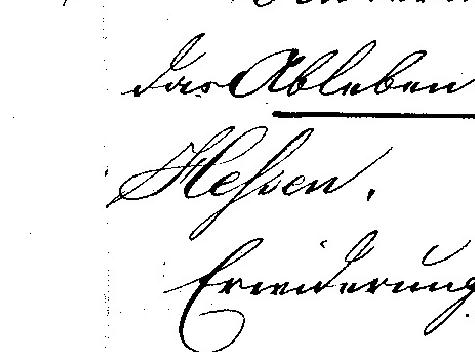 das Ableben
Hessen.
Erwiderung